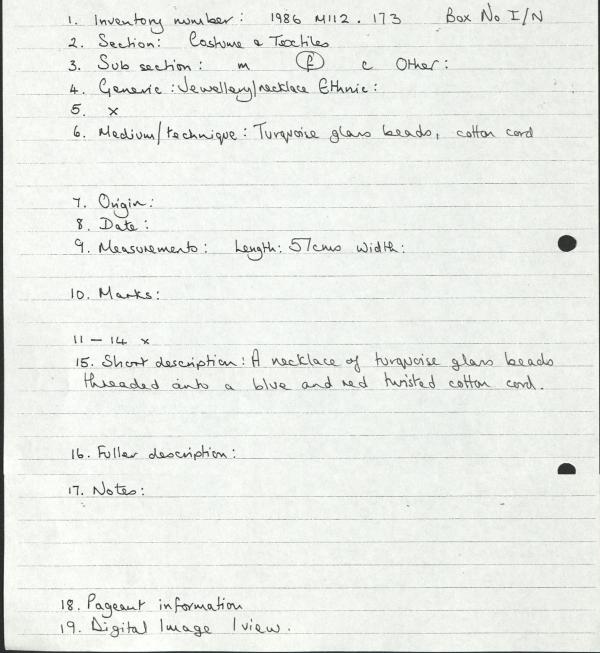 1. Inventory number: 1986 M112.173 Box No I/N
2. Section: Costume & Textiles
3. Sub section: m f c Other:
4. Generic: Jewellery/necklace Ethnic:
5. x
6. Medium/technique: Turquoise glass beads, cotton cord
7. Origin:
8. Date:
9. Measurements: Length: 57cms Width:
10. Marks:
11 - 14 x
15. Short description: A necklace of turquoise glass beads
threaded onto a blue and red twisted cotton cord.
16. Fuller description:
17. Notes:
18. Pageant information
19. Digital Image 1 view.